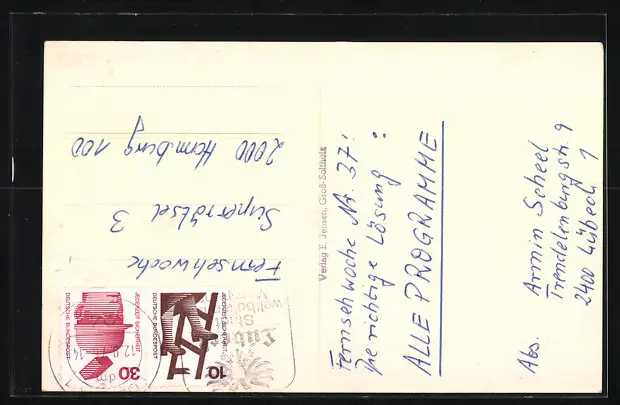 Fernsehwoche
Superrätsel 3
2000 Hamburg 100
Verlag E. Jensen, Groß-Soltholz
Fernsehwoche Nr. 37:
Die richtige Lösung:
ALLE PROGRAMME
Abs. Armin Scheel
Trendelenburgstr. 9
2400 Lübeck 1
JEDERZEIT SICHERHEIT
DEUTSCHE BUNDESPOST
30
JEDERZEIT SICHERHEIT
DEUTSCHE BUNDESPOST
10
12.9
-14